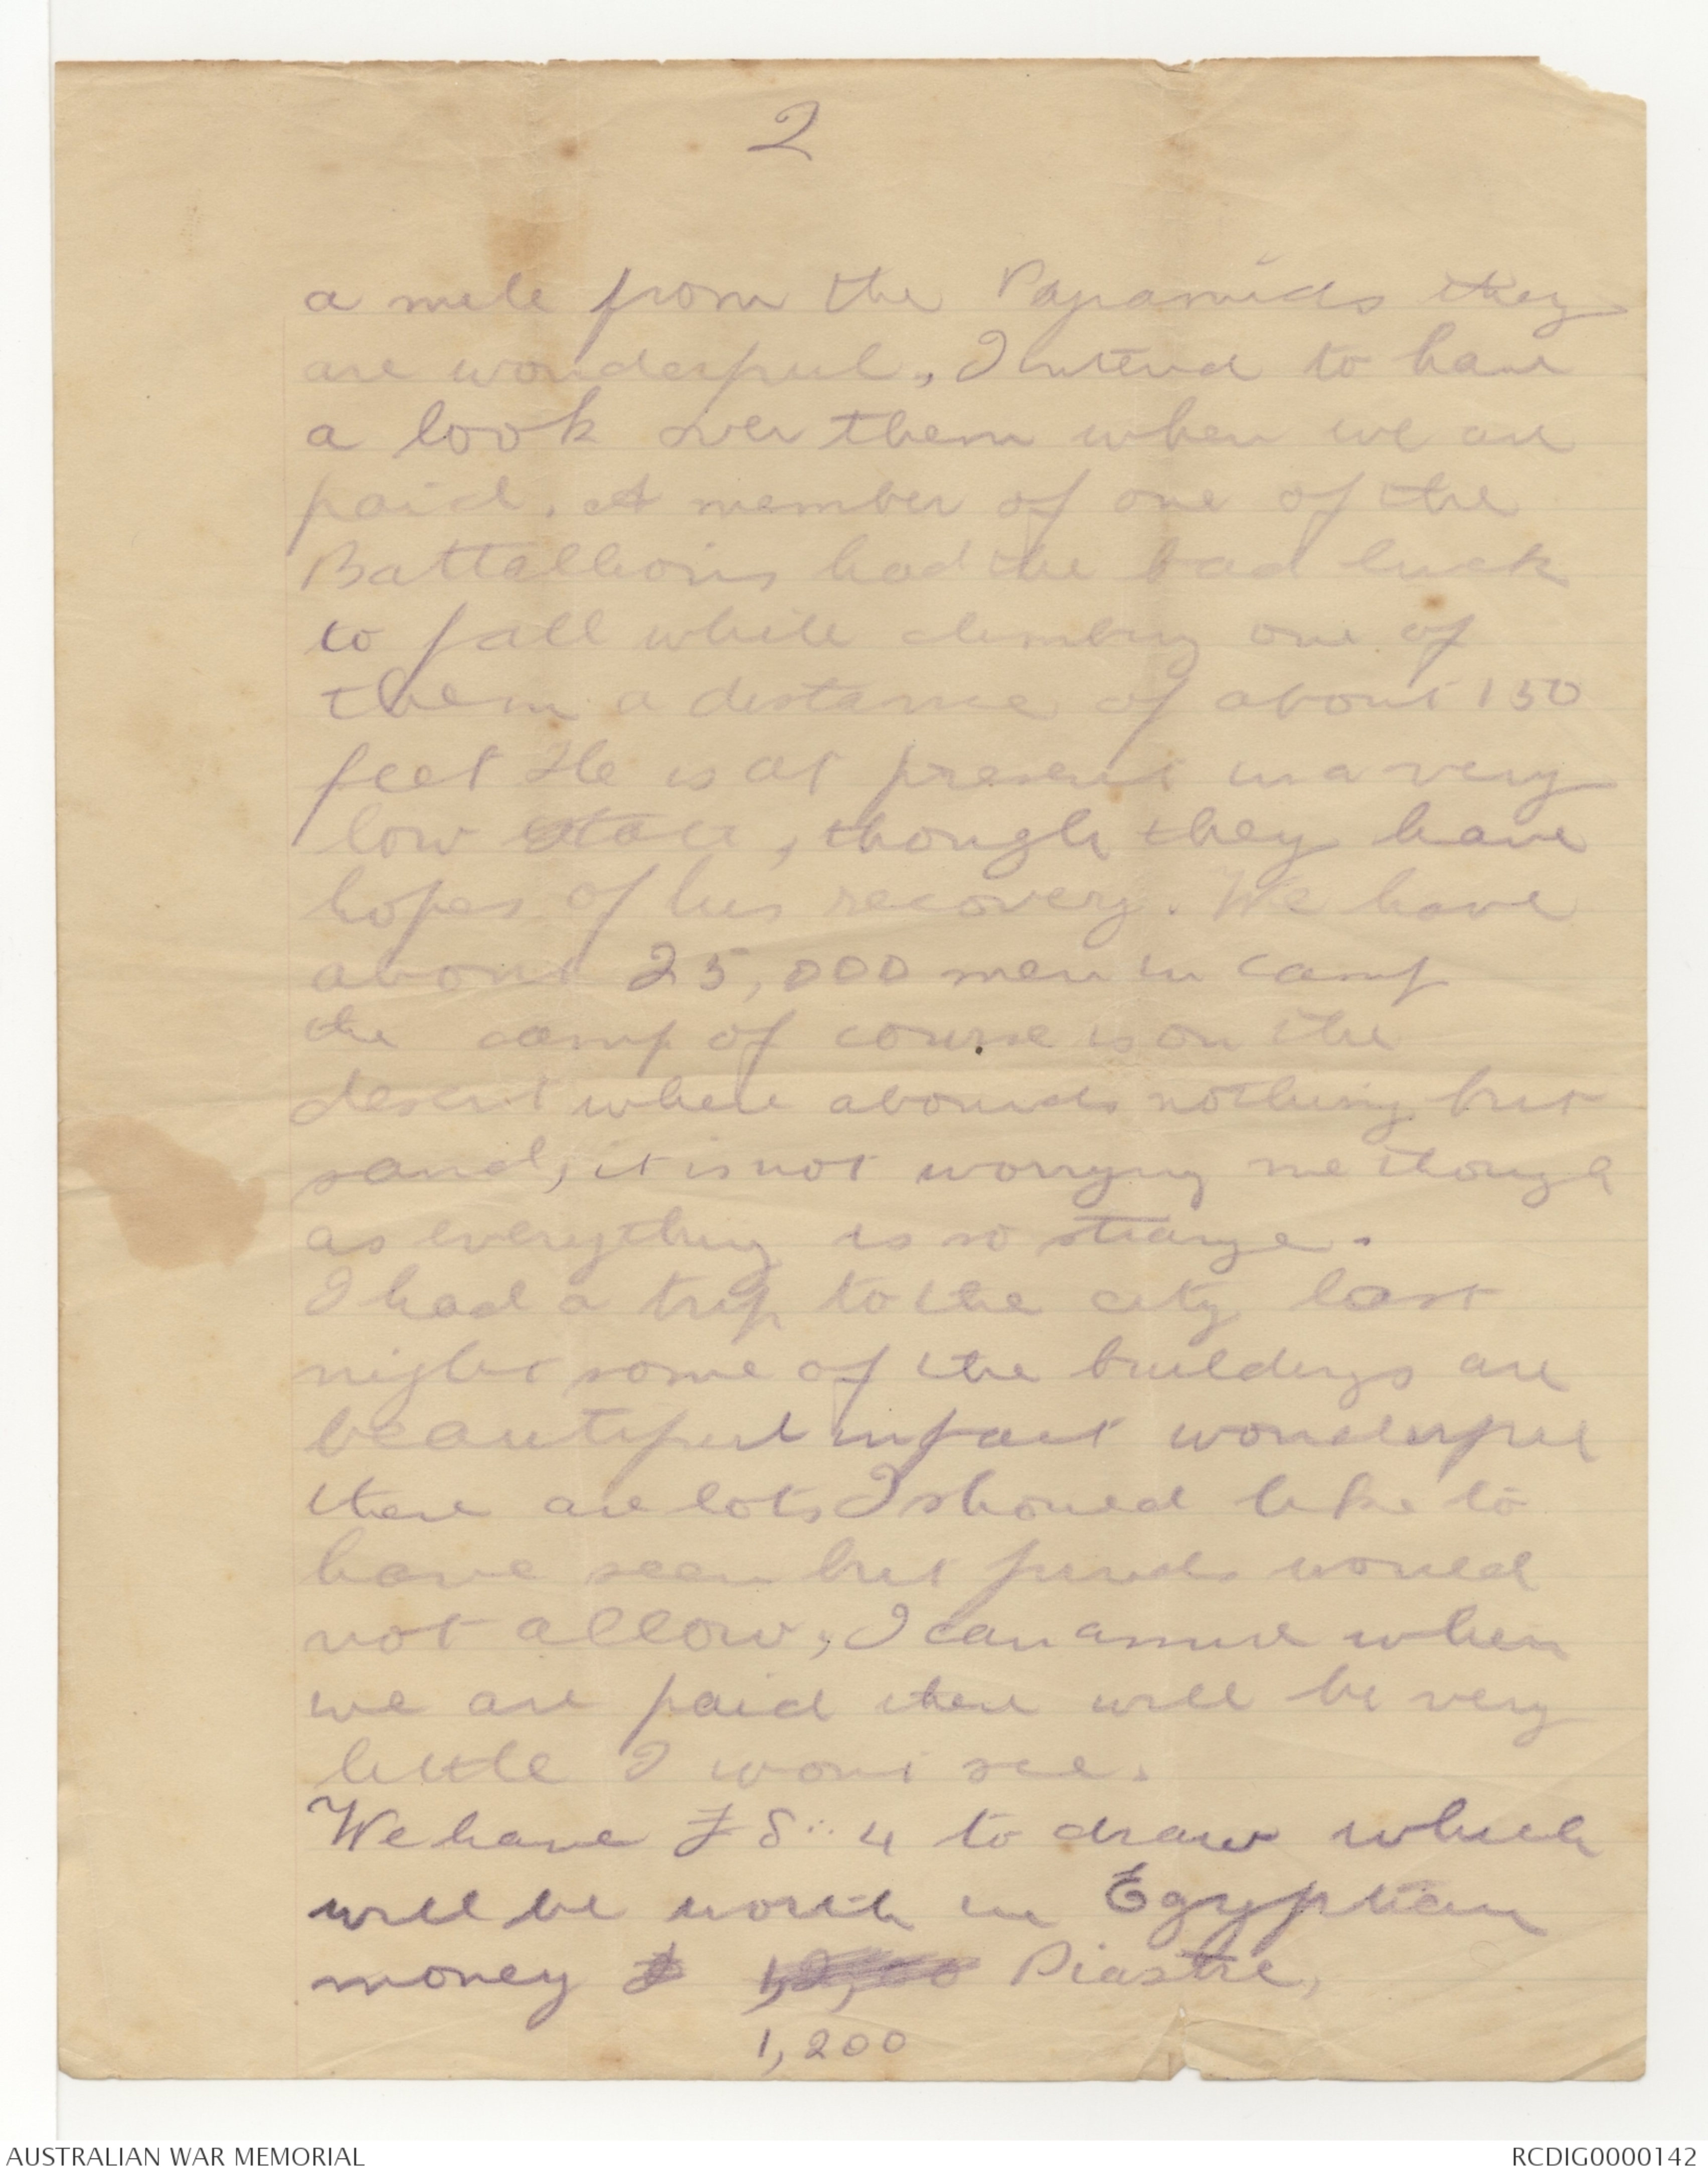 2
a mile from the Paramids they
are wonderful, I intend to have
a look over them when we are
paid. A member of one of the
Battallions had the bad luck
to fall while climbing one of
them a distance of about 150
feet He is at present in a very
low state, though they have
hopes of his recovery. We have
about 25,000 men in camp
the camp of course is on the
desert where abounds nothing but
sand, it is not worrying me though
as everything is so strange.
I had a trip to the city last
night some of the buildings are
beautiful in fact wonderful
there are lots I should like to
have seen but funds would
not allow, I can assure when
we are paid there will be very
little I wont see.
We have £8..4 to draw which
will be worth in Egyptian
money Piastre,
1,200
AUSTRALIAN WAR MEMORIAL
RCDIG0000142